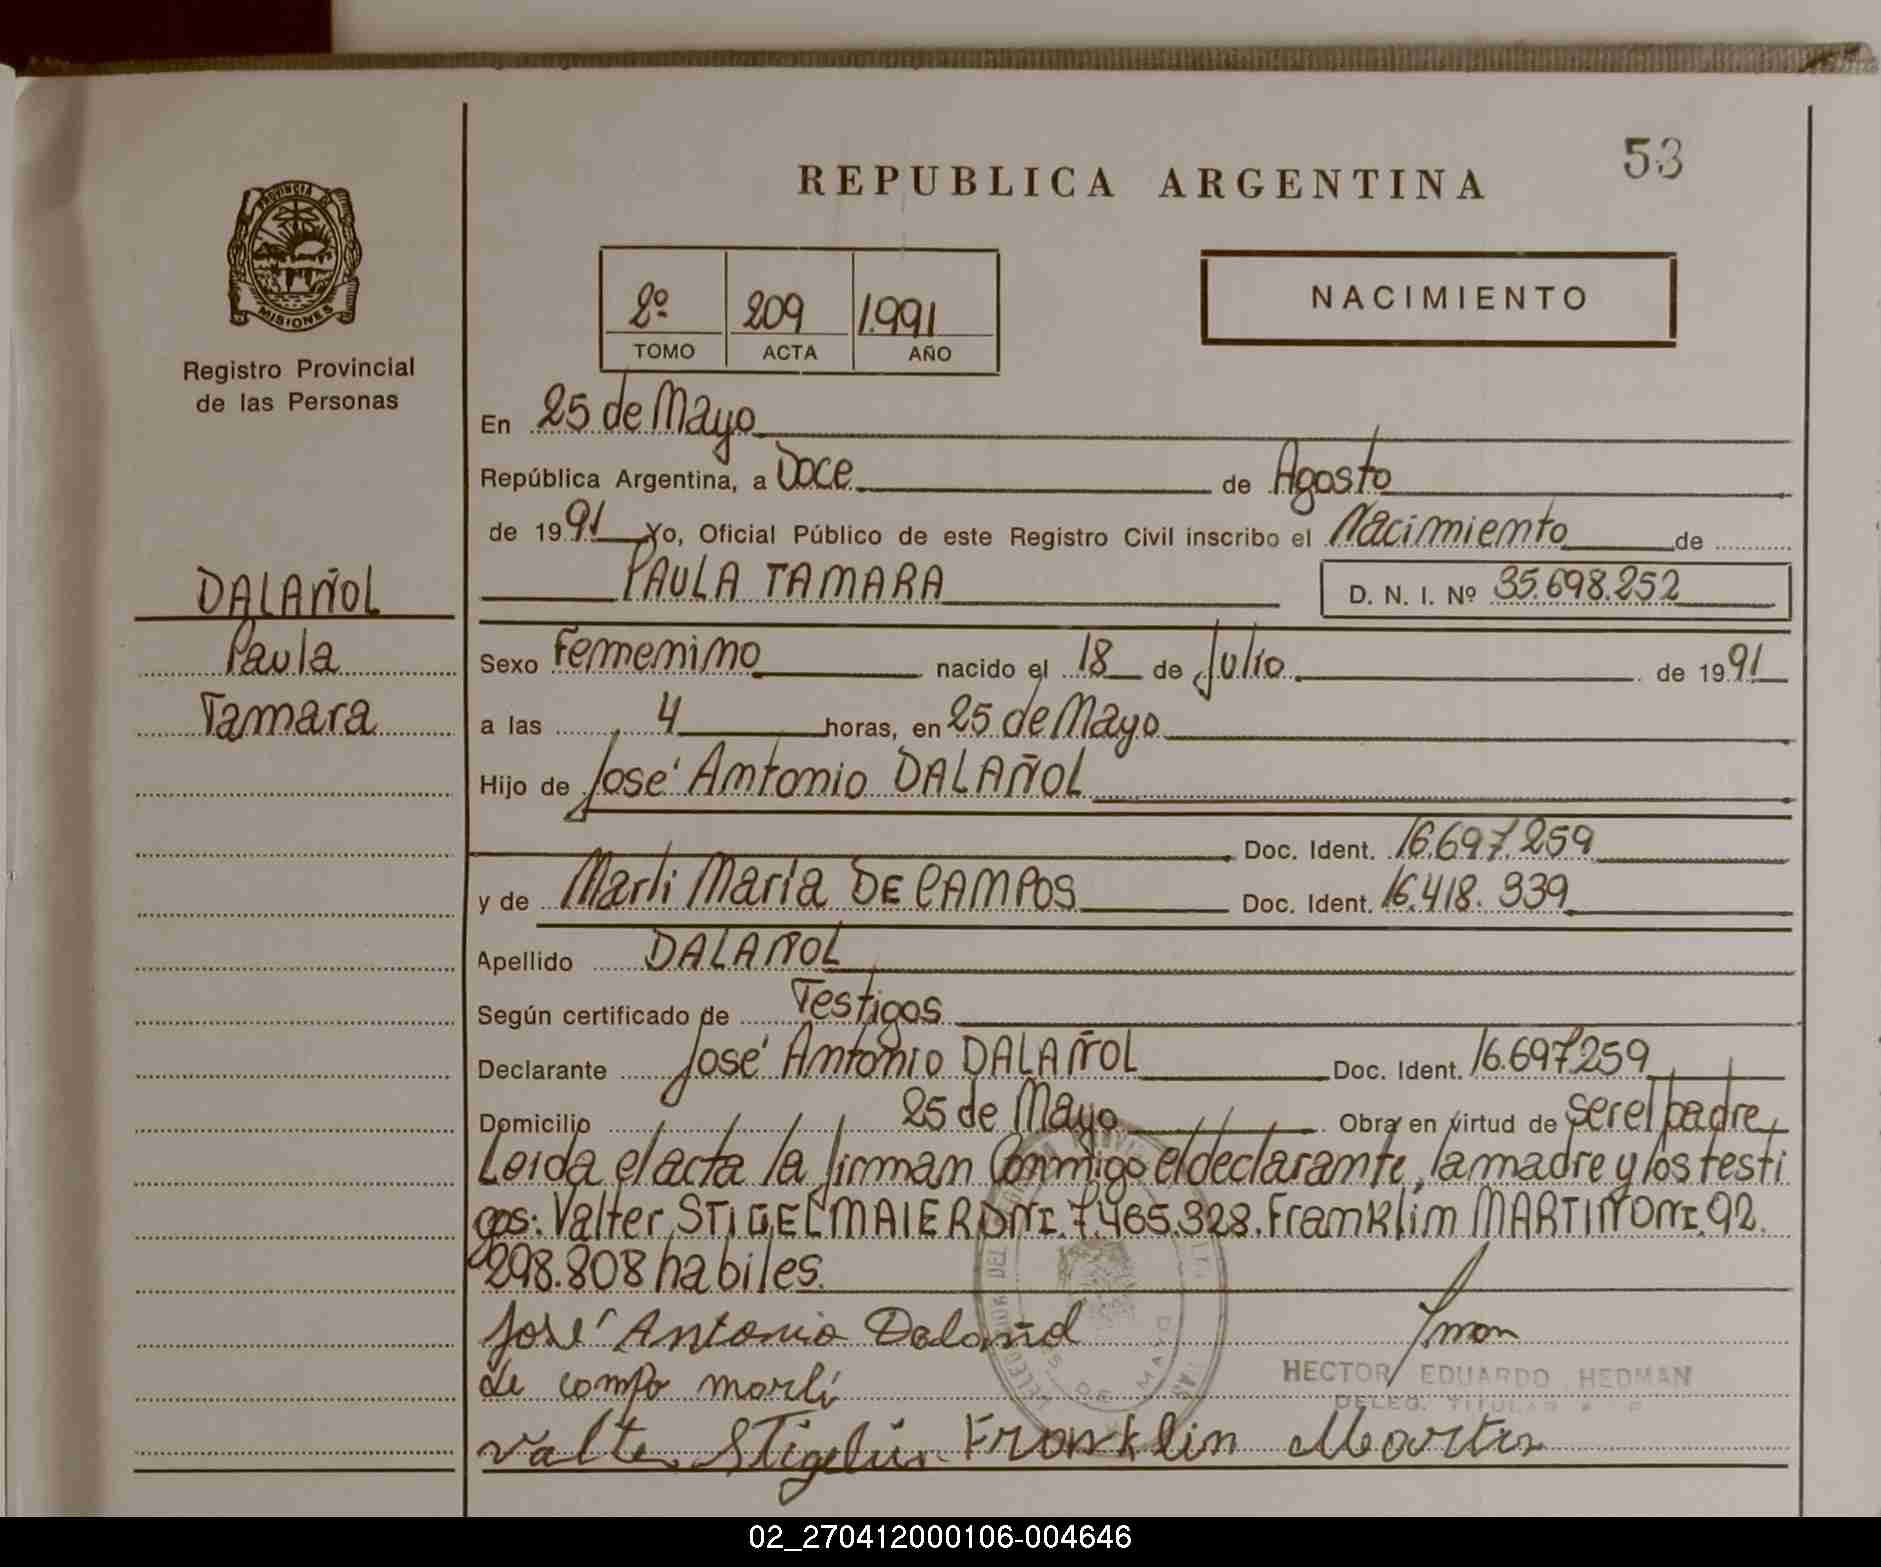 53
REPUBLICA ARGENTINA
PROVINCIA DE MISIONES
Registro Provincial
de las Personas
2º 209 1.991
TOMO ACTA AÑO
NACIMIENTO
En 25 de Mayo
República Argentina, a Doce de Agosto
de 1991 Yo, Oficial Público de este Registro Civil inscribo el Nacimiento de
PAULA TAMARA D. N. I. Nº 35.698.252
DALAÑOL
Paula
Tamara
Sexo Femenino nacido el 18 de Julio de 1991
a las 4 horas, en 25 de Mayo
Hijo de José Antonio DALAÑOL
Doc. Ident. 16.697.259
y de Marli María DE CAMPOS Doc. Ident. 16.418.939
Apellido DALAÑOL
Según certificado de Testigos
Declarante José Antonio DALAÑOL Doc. Ident. 16.697.259
Domicilio 25 de Mayo Obra en virtud de ser el padre,
Leida el acta la firman Conmigo el declarante, la madre y los testi
gos: Valter STIGELMAIER DNI. 7.465.328. Franklin MARTINONI. 92.
298.808 habiles.
José Antonio Dalañol
de campo marli
Valter Franklin
HECTOR EDUARDO HEDMAN
DELEG. TITULAR
02_270412000106-004646